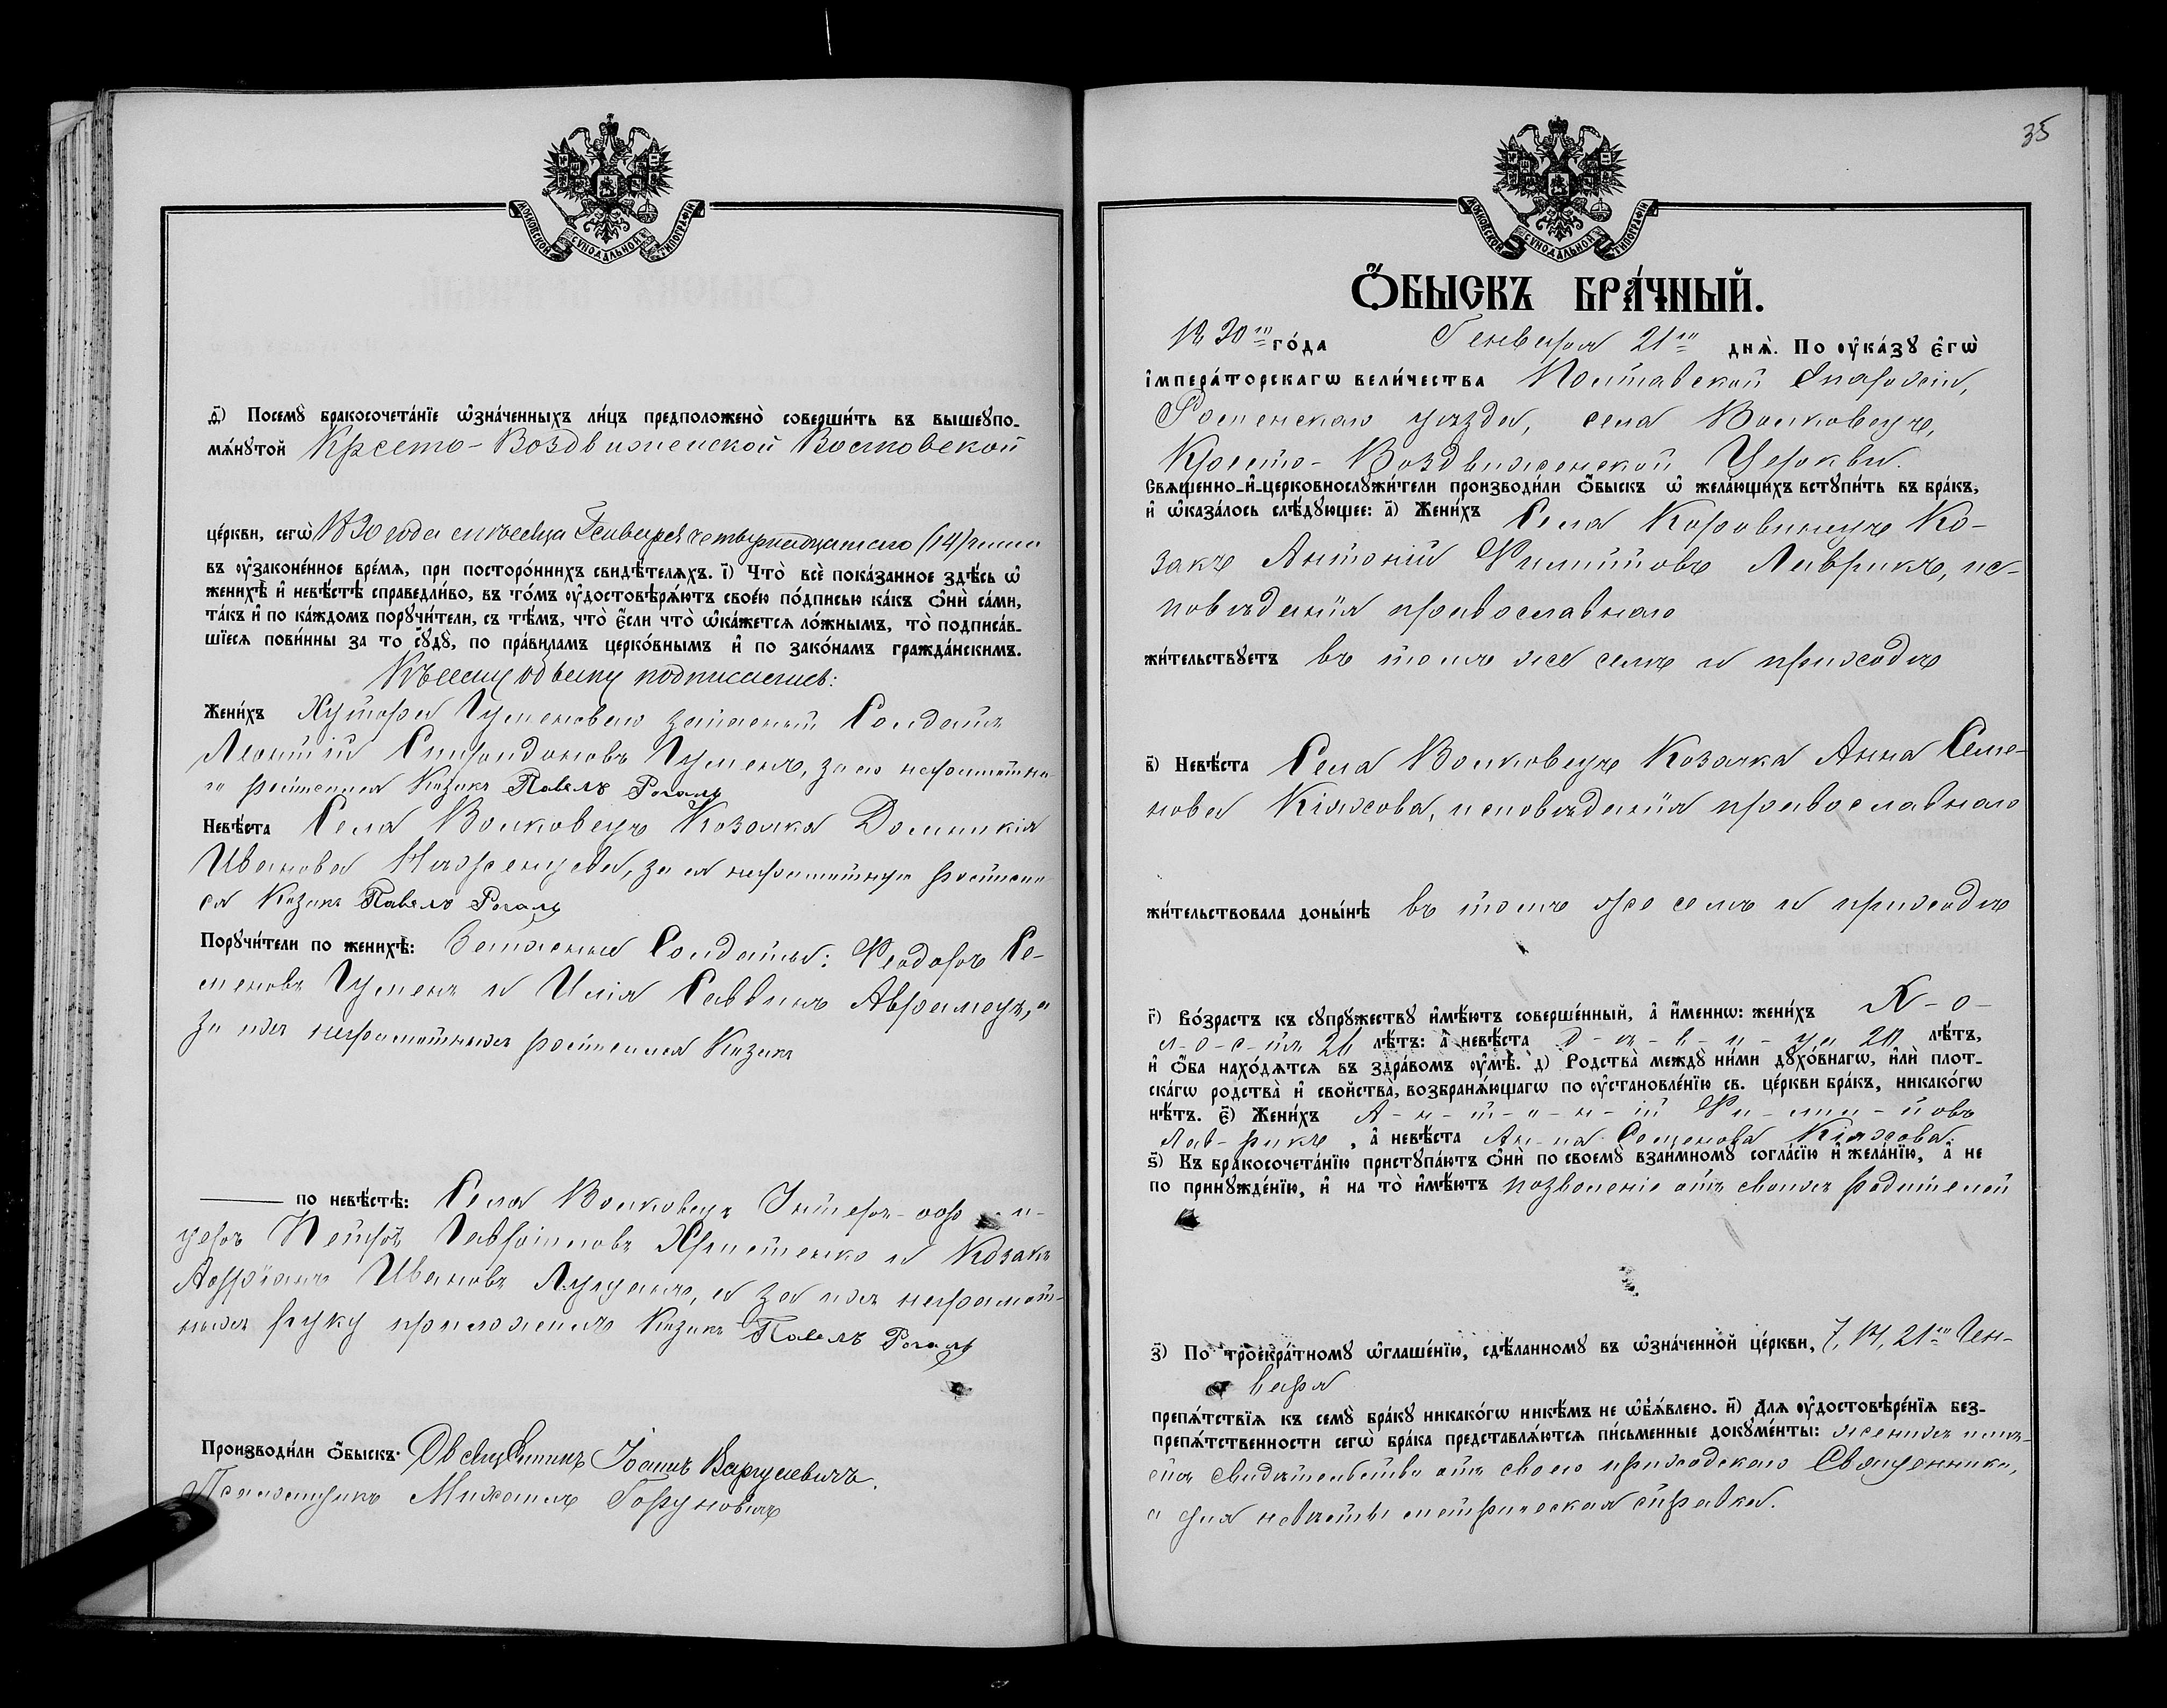 МОСКОВСКОЙ СУНОДАЛЬНОЙ ТИПОГРАФІИ
Посемѹ̀ бракосочета́нїе ѡ҆зна́ченныхъ ли́цъ предположено̀ соверши́ть въ вышеѹпо-
мѧ́нѹтой Кресто-Воздвиженской Волковской
це́ркви, сегѡ̀ 1890 года месяца Генваря четырнадцатаго (14) числа
въ ѹ҆законе́нное вре́мѧ, при посторо́ннихъ свидѣ́телѧхъ. і҃) Что̀ всѐ пока́занное здѣ́сь ѡ҆
женихѣ̀ и҆ невѣ́стѣ справедли́во, въ то́мъ ѹ҆достовѣрѧ́ютъ свое́ю по́дписью ка́къ ѻ҆нѝ са́ми,
та́къ и҆ по ка́ждомъ порѹчи́тели, съ тѣ́мъ, что̀ є҆́сли что̀ ѡ҆ка́жетсѧ ло́жнымъ, то̀ подписа́в-
шїесѧ пови́нны за то сѹдѹ̀, по пра́виламъ церко́внымъ и҆ по зако́намъ гражда́нскимъ.
Къ сему обыску подписались:
Жени́хъ Хутора Гуменоваго запасный Солдатъ
Леонтій Спиридоновъ Гуменъ, за его неграмотна-
го росписался Козакъ Павелъ Рогаль
Невѣ́ста Села Волковецъ Козачка Домникія
Иванова, за ея неграмотную росписал-
ся Козакъ Павелъ Рогаль
Порѹчи́тели по женихѣ̀: Запасные Солдаты: Ѳеодоръ Се-
меновъ Гуменъ и Илія Саввинъ Аврамецъ, а
за ихъ неграмотныхъ росписался Козакъ
по невѣ́стѣ: Села Волковецъ Унтеръ-офи-
церъ Петръ Гавріиловъ Христенко и Козакъ
Андріанъ Ивановъ, а за ихъ неграмот-
ныхъ руку приложилъ Козакъ Павелъ Рогаль
Производи́ли ѻ҆́быскъ: Священникъ Іоаннъ
Псаломщикъ Михаилъ Горуновичъ
35
МОСКОВСКОЙ СУНОДАЛЬНОЙ ТИПОГРАФІИ
Ѻ҆́БЫСКЪ БРА́ЧНЫЙ.
1890го го́да Генваря 21го днѧ̀. По ѹ҆ка́зѹ є҆гѡ̀
і҆мпера́торскагѡ вели́чества Полтавской Епархіи,
Роменскаго уѣзда, села Волковецъ,
Кресто-Воздвиженской Церкви.
Свѧщенно-и҆-церковнослѹжи́тели производи́ли ѻ҆́быскъ ѡ҆ жела́ющихъ встѹпи́ть въ бра́къ,
и҆ ѡ҆каза́лось слѣ́дѹющее: а҃) Жени́хъ Села Коровинецъ Ко-
закъ Антоній Филипповъ Лаврикъ, ис-
повѣданія православнаго
жи́тельствѹетъ въ томъ же селѣ и приходѣ
в҃) Невѣ́ста Села Волковецъ Козачка Анна Семе-
нова Кіяхова, исповѣданія православнаго
жи́тельствовала доны́нѣ въ томъ же селѣ и приходѣ
г҃) Во́зрастъ къ сѹпрѹ́жествѹ и҆мѣ́ютъ соверше́нный, а҆ и҆́меннѡ: жени́хъ Х-о-
л-о-с-тъ лѣ́тъ: а҆ невѣ́ста д-ѣ-в-и-ца лѣ́тъ,
и҆ ѻ҆́ба нахо́дѧтсѧ въ здра́вомъ ѹ҆мѣ̀. д҃) Родства̀ междѹ ни́ми дѹхо́внагѡ, и҆лѝ плот-
ска́гѡ родства̀ и҆ свойства̀, возбранѧ́ющагѡ по ѹ҆становле́нїю св. це́ркви бра́къ, никако́гѡ
нѣ́тъ. є҃) Жени́хъ А-н-т-о-н-ій Фи-лип-повъ
Лав-рикъ, а҆ невѣ́ста Ан-на Семенова Кіяхова.
ѕ҃) Къ бракосочета́нїю пристѹпа́ютъ ѻ҆нѝ по своемѹ̀ взаи́мномѹ согла́сїю и҆ жела́нїю, а҆ не
по принѹжде́нїю, и҆ на то̀ и҆мѣ́ютъ позволеніе отъ своихъ родителей
з҃) По троекра́тномѹ ѡ҆глаше́нїю, сдѣ́ланномѹ въ ѡ҆зна́ченной це́ркви, 7, 14, 21го Ген-
варя
препѧ́тствїѧ къ семѹ̀ бра́кѹ никако́гѡ никѣ́мъ не ѡ҆б̾ѧ́влено. и҃) Для ѹ҆достовѣре́нїѧ без-
препѧ́тственности сегѡ̀ бра́ка представлѧ́ютсѧ пи́сьменные докѹме́нты: женихъ имѣ-
етъ свидѣтельство отъ своего приходскаго Священника,
а для невѣсты метрическая справка.